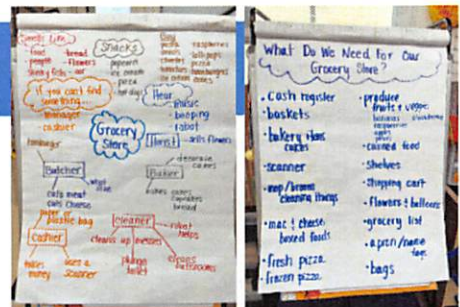 Smells Like
food
bread
people
flowers
stinky fish
Snacks
popcorn
ice cream
pizza
hot dogs
pasta
raspberries
lollipops
pizza
If you can't find
something...
manager
cashier
Hear
music
beeping
robot
Grocery
Store
Florist
sells flowers
hamburger
Butcher
cuts meat
cuts cheese
Baker
decorate
cakes
makes cakes
cupcakes
bread
paper or
plastic bag
Cashier
takes
money
uses a
scanner
Cleaner
cleans up messes
robot
helps
plunge
toilet
cleans
bathrooms
What Do We Need For Our
Grocery Store?
• cash register
• baskets
• bakery items
cakes
• scanner
• mop/brooms
cleaning things
• mac & cheese
boxed foods
• fresh pizza
• frozen pizza
• produce
fruits & veggies
bananas
strawberry
raspberries
apples
• canned food
• shelves
• shopping cart
• flowers & balloons
• grocery list
• apron/name
tags
• bags